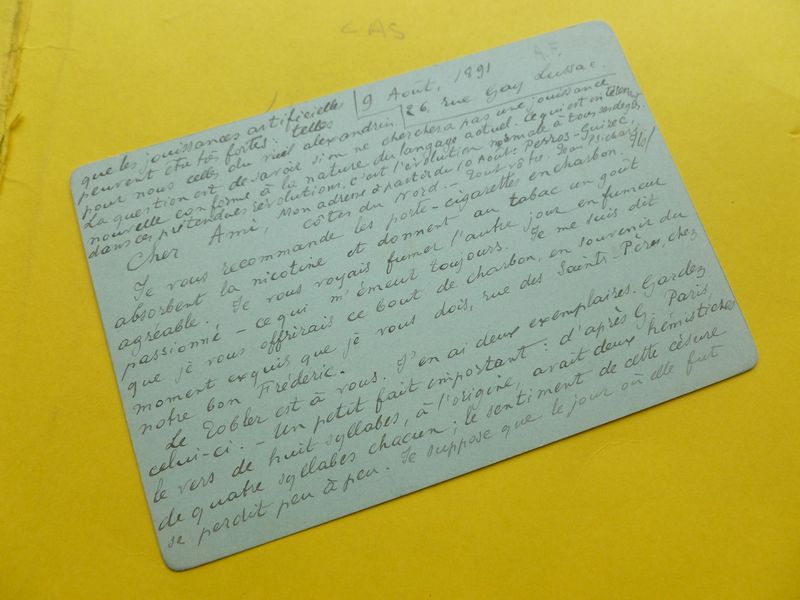 CAS
A.F.
que les jouissances artificielles
peuvent être très fortes: telles
9 Août, 1891
26, rue Gay Lussac.
pour nous celles du vieil alexandrin
La question est de savoir si on ne cherchera pas une jouissance
nouvelle conforme à la nature du langage actuel. Ce qui est intéressant
dans ces prétendues révolutions, c'est l'évolution normale à tous
Mon adresse à partir du 10 Août: Perros-Guirec,
Côtes du Nord. — Tout vôtre, Jean Psichari
Cher Ami,
Je vous recommande les porte-cigarettes en charbon. Ils
absorbent la nicotine et donnent au tabac un goût
agréable. Je vous voyais fumer l'autre jour en fumeur
passionné — ce qui m'émeut toujours. Je me suis dit
que je vous offrirais ce bout de charbon, en souvenir du
moment exquis que je vous dois, rue des Saints-Pères, chez
notre bon Frédéric.
Le Tobler est à vous. J'en ai deux exemplaires. Gardez
celui-ci. — Un petit fait important: d'après G. Paris,
le vers de huit syllabes, à l'origine, avait deux hémistiches
de quatre syllabes chacun; le sentiment de cette césure
se perdit peu à peu. Je suppose que le jour où elle fut